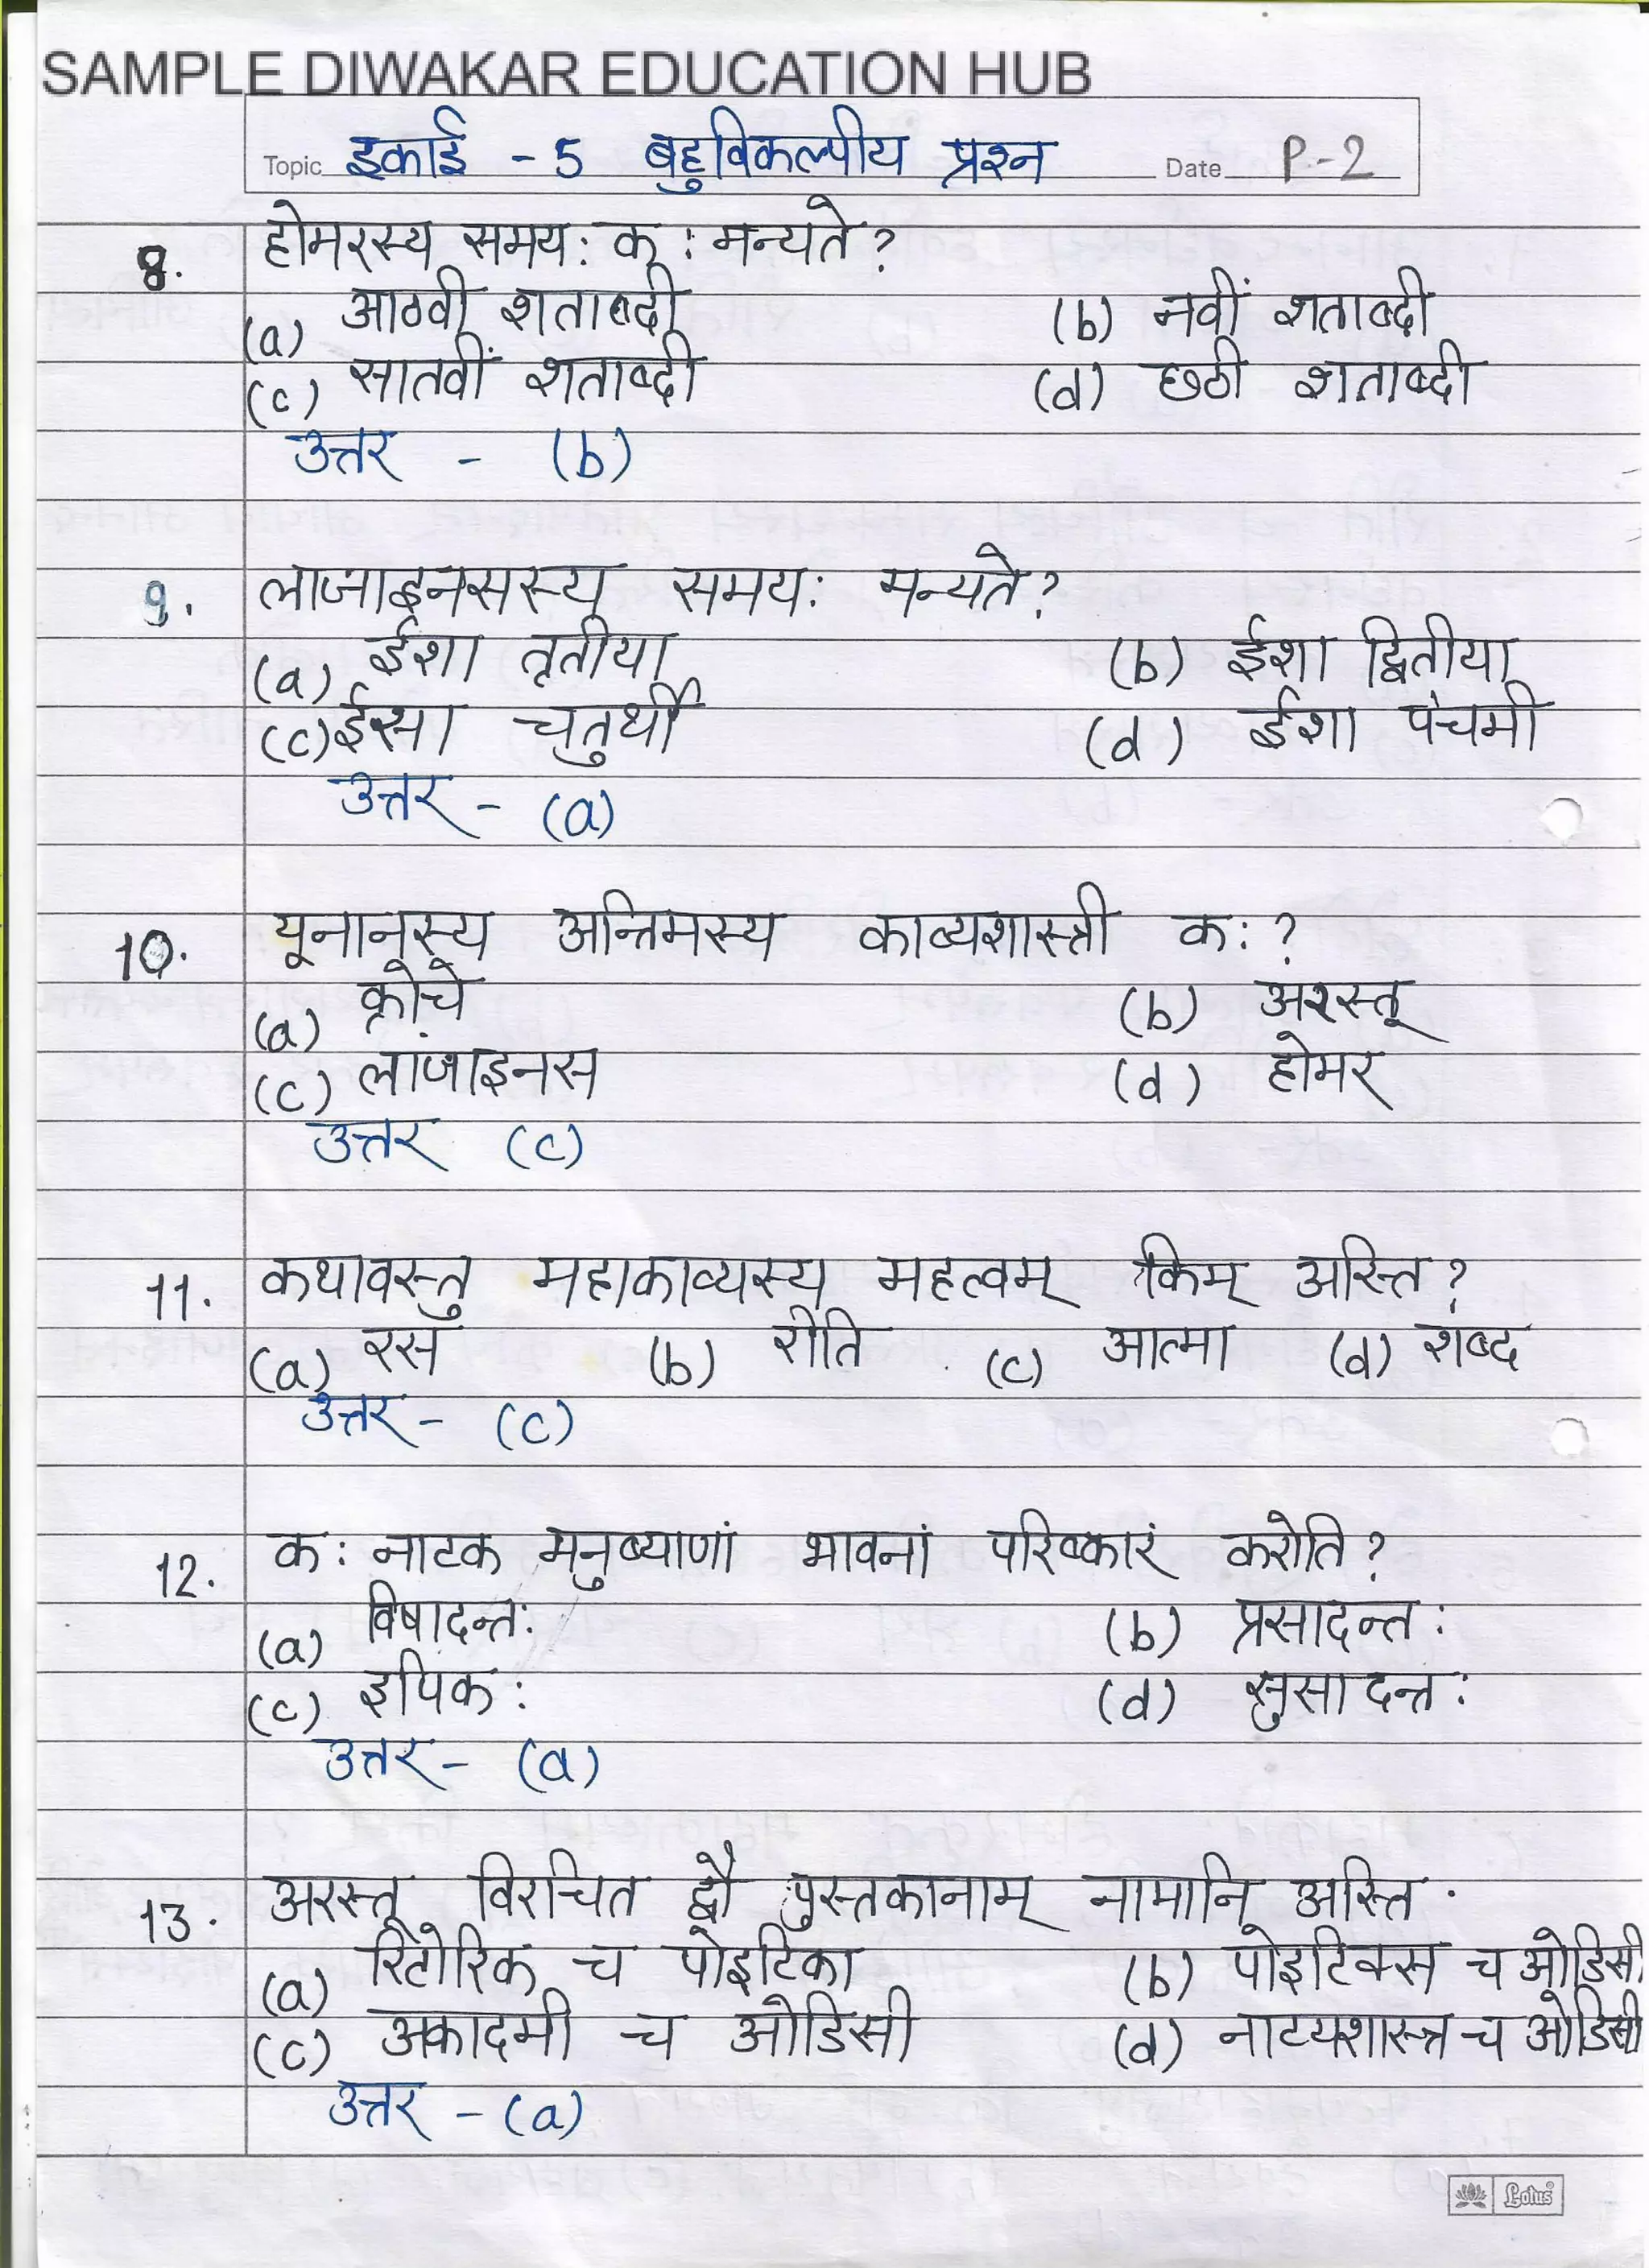 SAMPLE DIWAKAR EDUCATION HUB
Topic इकाई - 5 बहुविकल्पीय प्रश्न Date P-2
8. होमरस्य समय: क: मन्यते?
(a) आठवी शताब्दी (b) नवीं शताब्दी
(c) सातवीं शताब्दी (d) छठी शताब्दी
उत्तर - (b)
9. लाजाइनसस्य समय: मन्यते?
(a) ईशा तृतीया (b) ईशा द्वितीया
(c) ईसा चतुर्थी (d) ईशा पंचमी
उत्तर - (a)
10. यूनानस्य अन्तिमस्य काव्यशास्त्री क:?
(a) क्रोचे (b) अरस्तू
(c) लाजाइनस (d) होमर
उत्तर (c)
11. कथावस्तु महाकाव्यस्य महत्वम् किम् अस्ति?
(a) रस (b) रीति (c) आत्मा (d) शब्द
उत्तर - (c)
12. क: नाटक मनुष्याणां भावनां परिष्कारं करोति?
(a) विषादन्त: (b) प्रसादन्त:
(c) इपिक: (d) सुसादन्त:
उत्तर - (a)
13. अरस्तू विरचित द्वौ पुस्तकानाम् नामानि अस्ति.
(a) रिटोरिक च पोइटिका (b) पोइटिक्स च ओडिसी
(c) अकादमी च ओडिसी (d) नाट्यशास्त्र च ओडिसी
उत्तर - (a)
Lotus